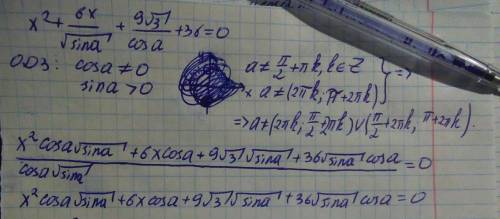 x² + 6x/√sina + 9√3/cosa + 36 = 0
ОДЗ: cosa ≠ 0 a ≠ π/2 + πk, k ∈ Z
sina > 0 a ≠ (2πk; π + 2πk) } =>
=> a ≠ (2πk; π/2 + 2πk) ∪ (π/2 + 2πk; π + 2πk).
(x² cosa √sina + 6x cosa + 9√3 √sina + 36√sina cosa)/(cosa √sina) = 0
x² cosa √sina + 6x cosa + 9√3 √sina + 36√sina cosa = 0